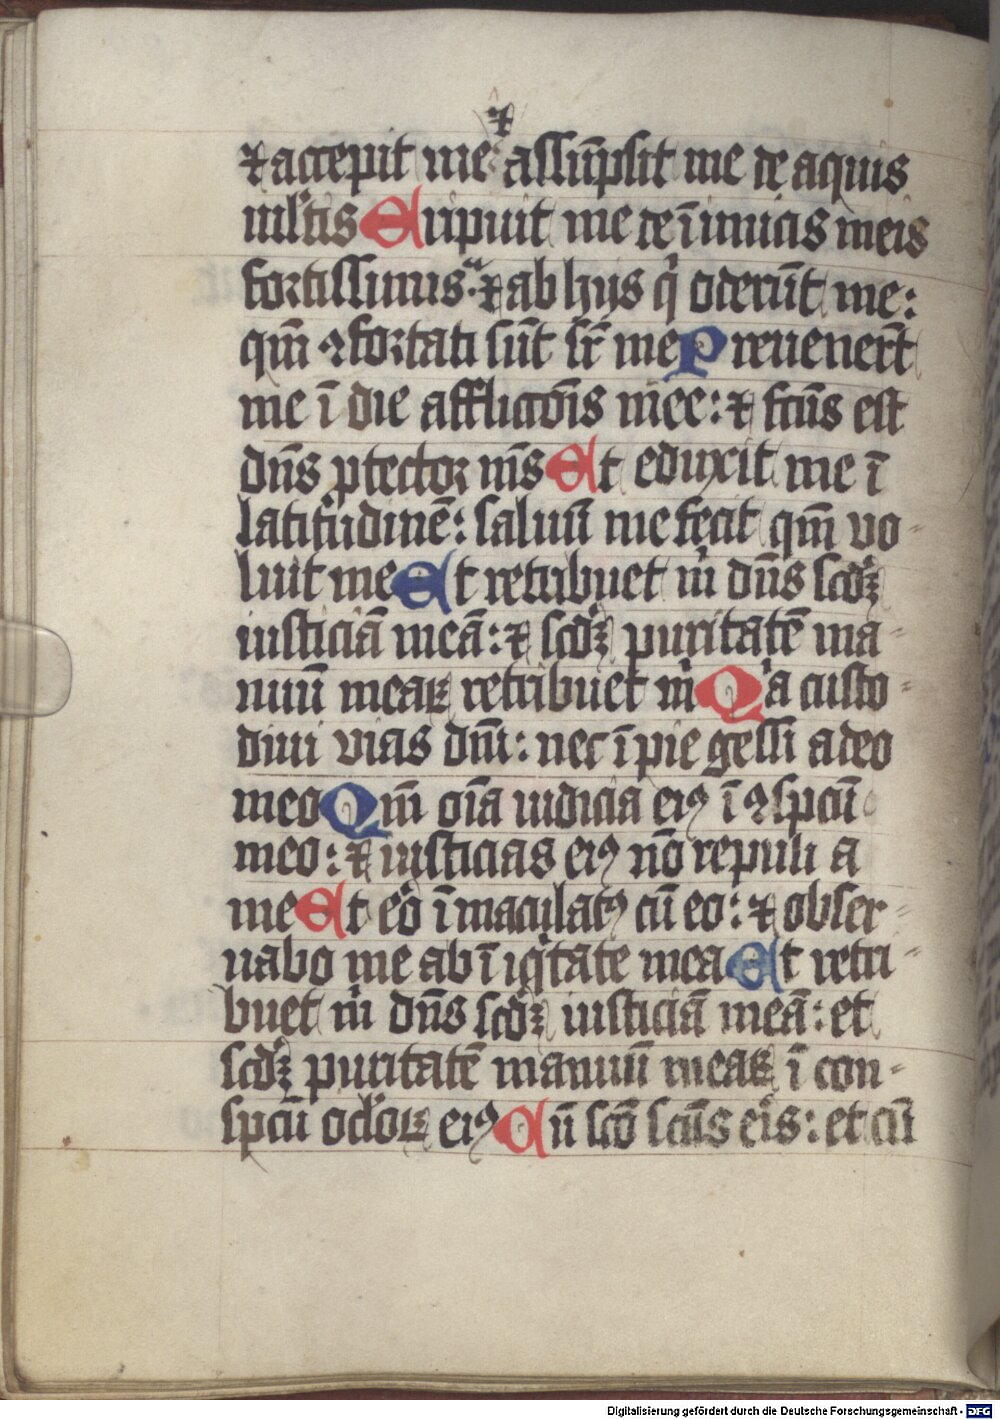 ⁊
⁊ accepit me assūpsit me de aquis
ml'tis Eripuit me de īimicis meis
fortissimis ⁊ ab hijs q̇ oderūt me:
qm̄ ꝯfortati sūt sr̄ me Preuener̄t
me ī die afflictōis mee: ⁊ fcūs est
dn̄s ptector m̄s Et eduxit me ī
latitudinē: saluū me fecit qm̄ vo-
luit me Et retribuet ṁ dn̄s scdꝫ
iusticiā meā: ⁊ scdꝫ puritatē ma-
nuū meaꝝ retribuet ṁ Qa custo-
diui vias dn̄i: nec īpie gessi a deo
meo Qm̄ oīa iudicia eiꝰ ī ꝯspcū
meo: ⁊ iusticias eiꝰ nō repuli a
me Et eo īmaculatꝰ cū eo: ⁊ obser-
uabo me ab īiq̇tate mea Et retri-
buet ṁ dn̄s scdꝫ iusticiā meā: et
scdꝫ puritatē manuū meaꝝ ī con-
spcū oc̓loꝝ eiꝰ Cū scō scūs eris: et cū
Digitalisierung gefördert durch die Deutsche Forschungsgemeinschaft - DFG